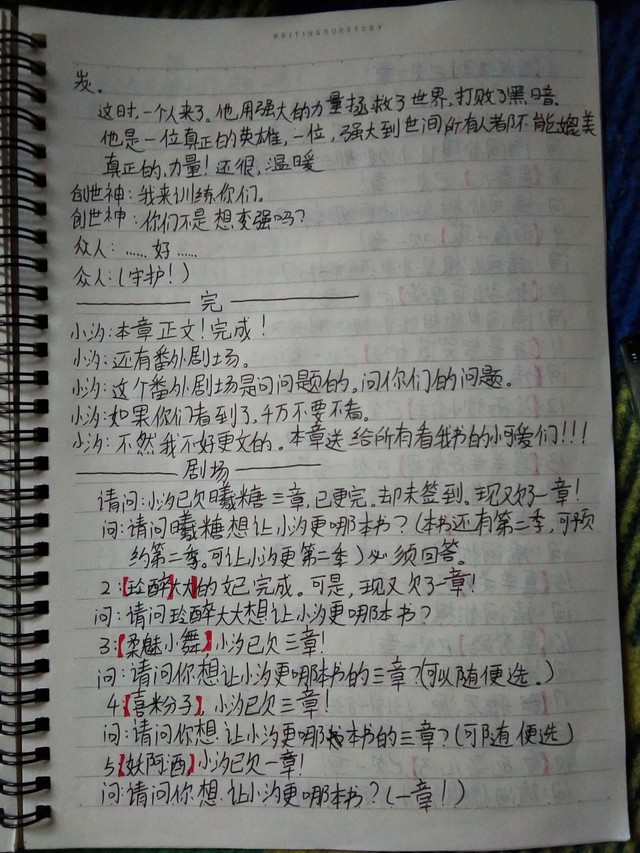 WRITING&OURSTORY
炭。
这时,一个人来了。他用强大的力量拯救了世界,打败了黑暗.
他是一位真正的英雄,一位,强大到世间所有人都不能媲美
真正的,力量!还很,温暖
创世神:我来训练你们。
创世神:你们不是想变强吗?
众人:……好……
众人:(守护!)
完
小汐:本章正文!完成!
小汐:还有番外剧场。
小汐:这个番外剧场是问问题的。问你们的问题。
小汐:如果你们看到了,千万不要不看。
小汐:不然我不好更文的。本章送给所有看我书的小可爱们!!!
剧场
请问:小汐已欠曦糖三章,已更完。却未签到。现又欠了一章!
问:请问曦糖想让小汐更哪本书?(本书还有第二季,可预
约第二季。可让小汐更第二季)必须回答。
2:【玹醉大大】的文已完成。可是,现又欠了一章!
问:请问玹醉大大想让小汐更哪本书?
3:【柔魅小舞】,小汐已欠三章!
问:请问你想让小汐更哪本书的三章?(可以随便选。)
4:【喜米分子】,小汐已欠三章!
问:请问你想,让小汐更哪本书的三章?(可随便选)
5:【妖阿酒】小汐已欠一章!
问:请问你想,让小汐更哪本书?(一章!)